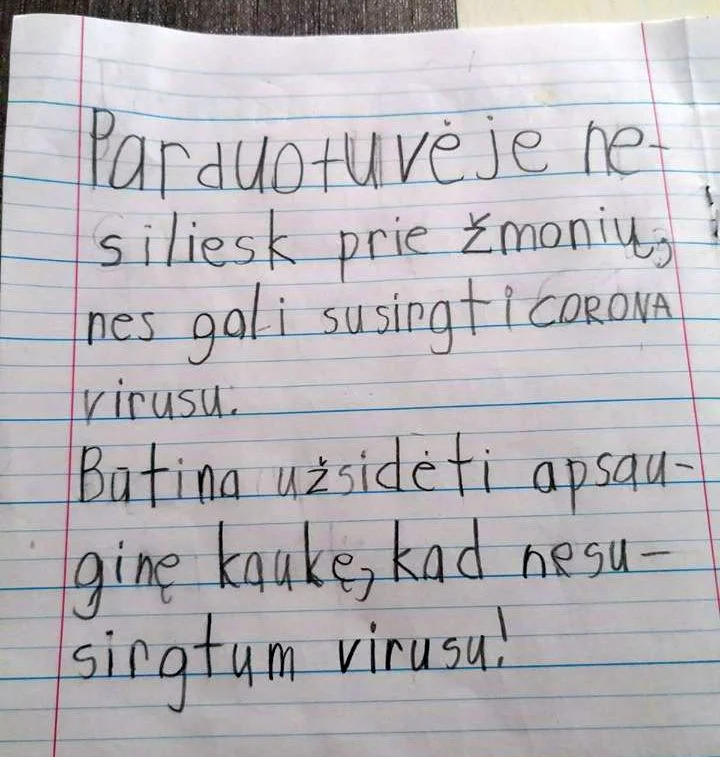 Parduotuvėje ne-
siliesk prie žmonių,
nes gali susirgti CORONA
virusu.
Būtina užsidėti apsau-
ginę kaukę, kad nesu-
sirgtum virusu!